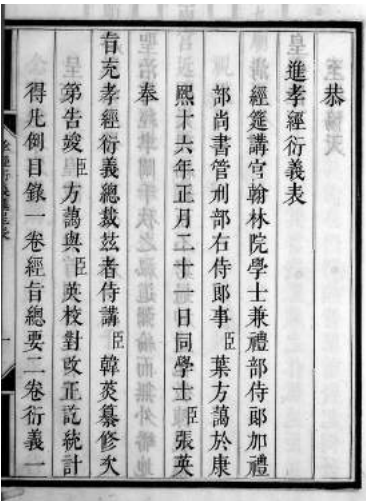 恭
進孝經衍義表
經筵講官翰林院學士兼禮部侍郎加禮
部尚書管刑部右侍郎事臣葉方藹於康
熙十六年正月二十一日同學士臣張英
奉
旨充孝經衍義總裁茲者侍講臣韓菼纂修次
第告竣臣方藹與臣英校對改正訖統計
得凡例目錄一卷經旨總要二卷衍義一